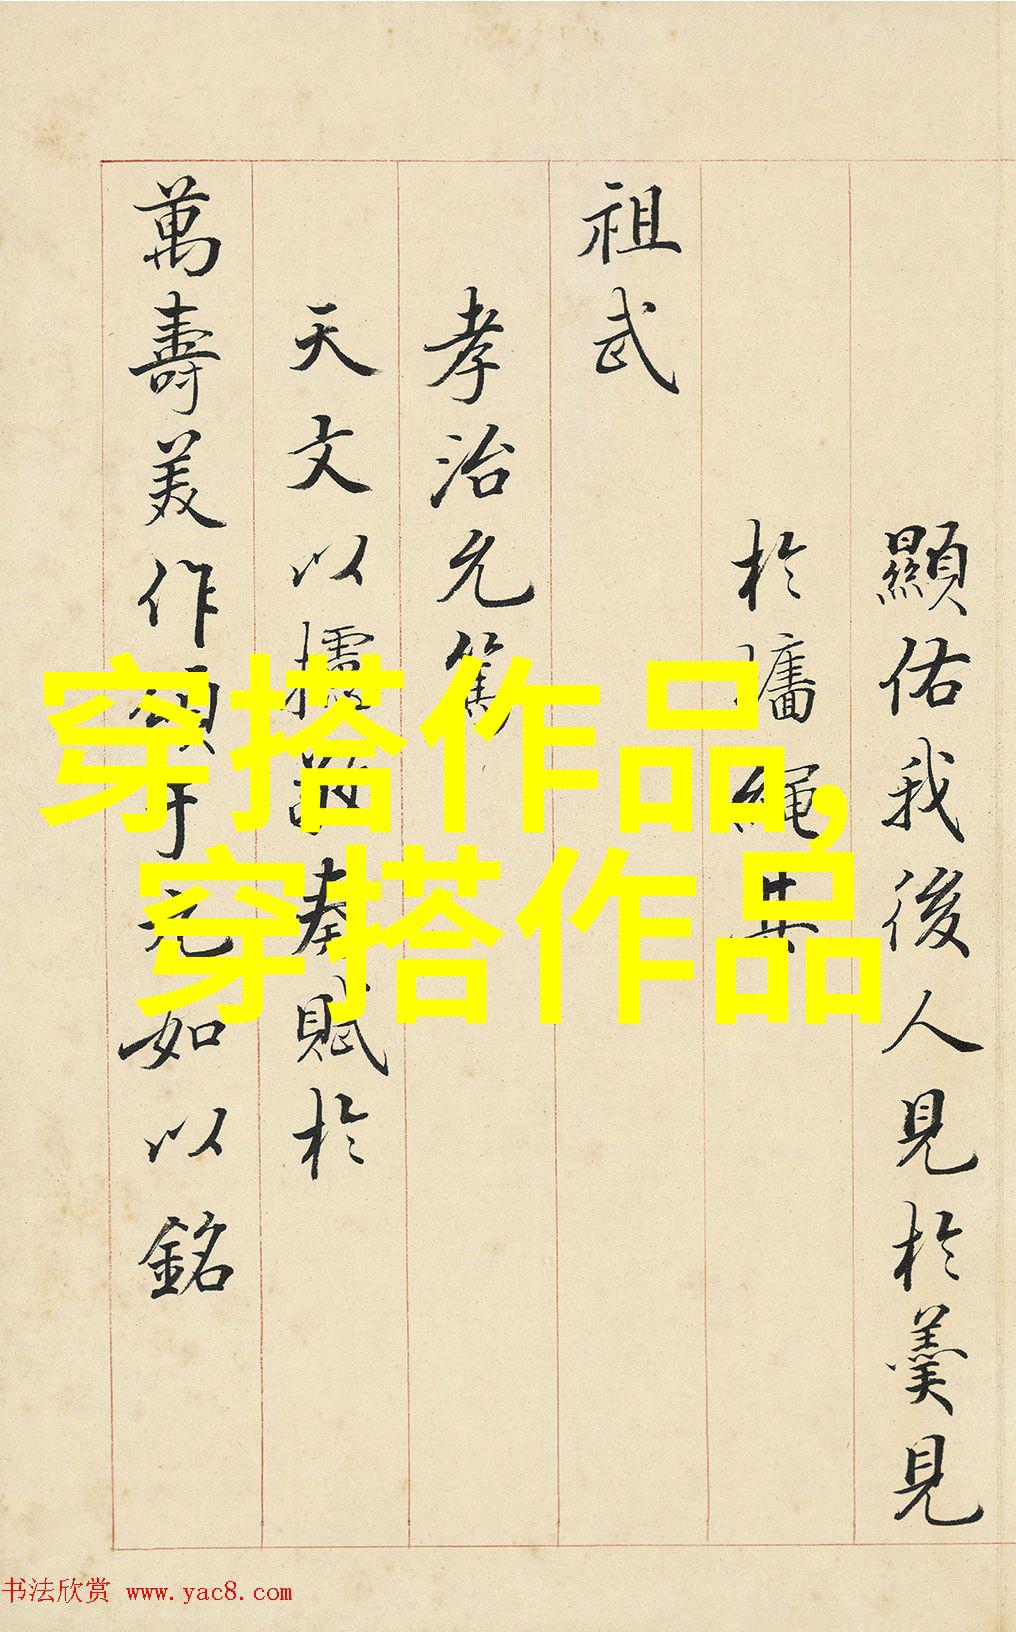 顯佑我後人見於羹見
於牆繩其
祖武
孝治允篤
天文以摛 奏賦於
萬壽美作頌于 如以銘
穿搭作品,
穿搭作品
书法欣赏 www.yac8.com